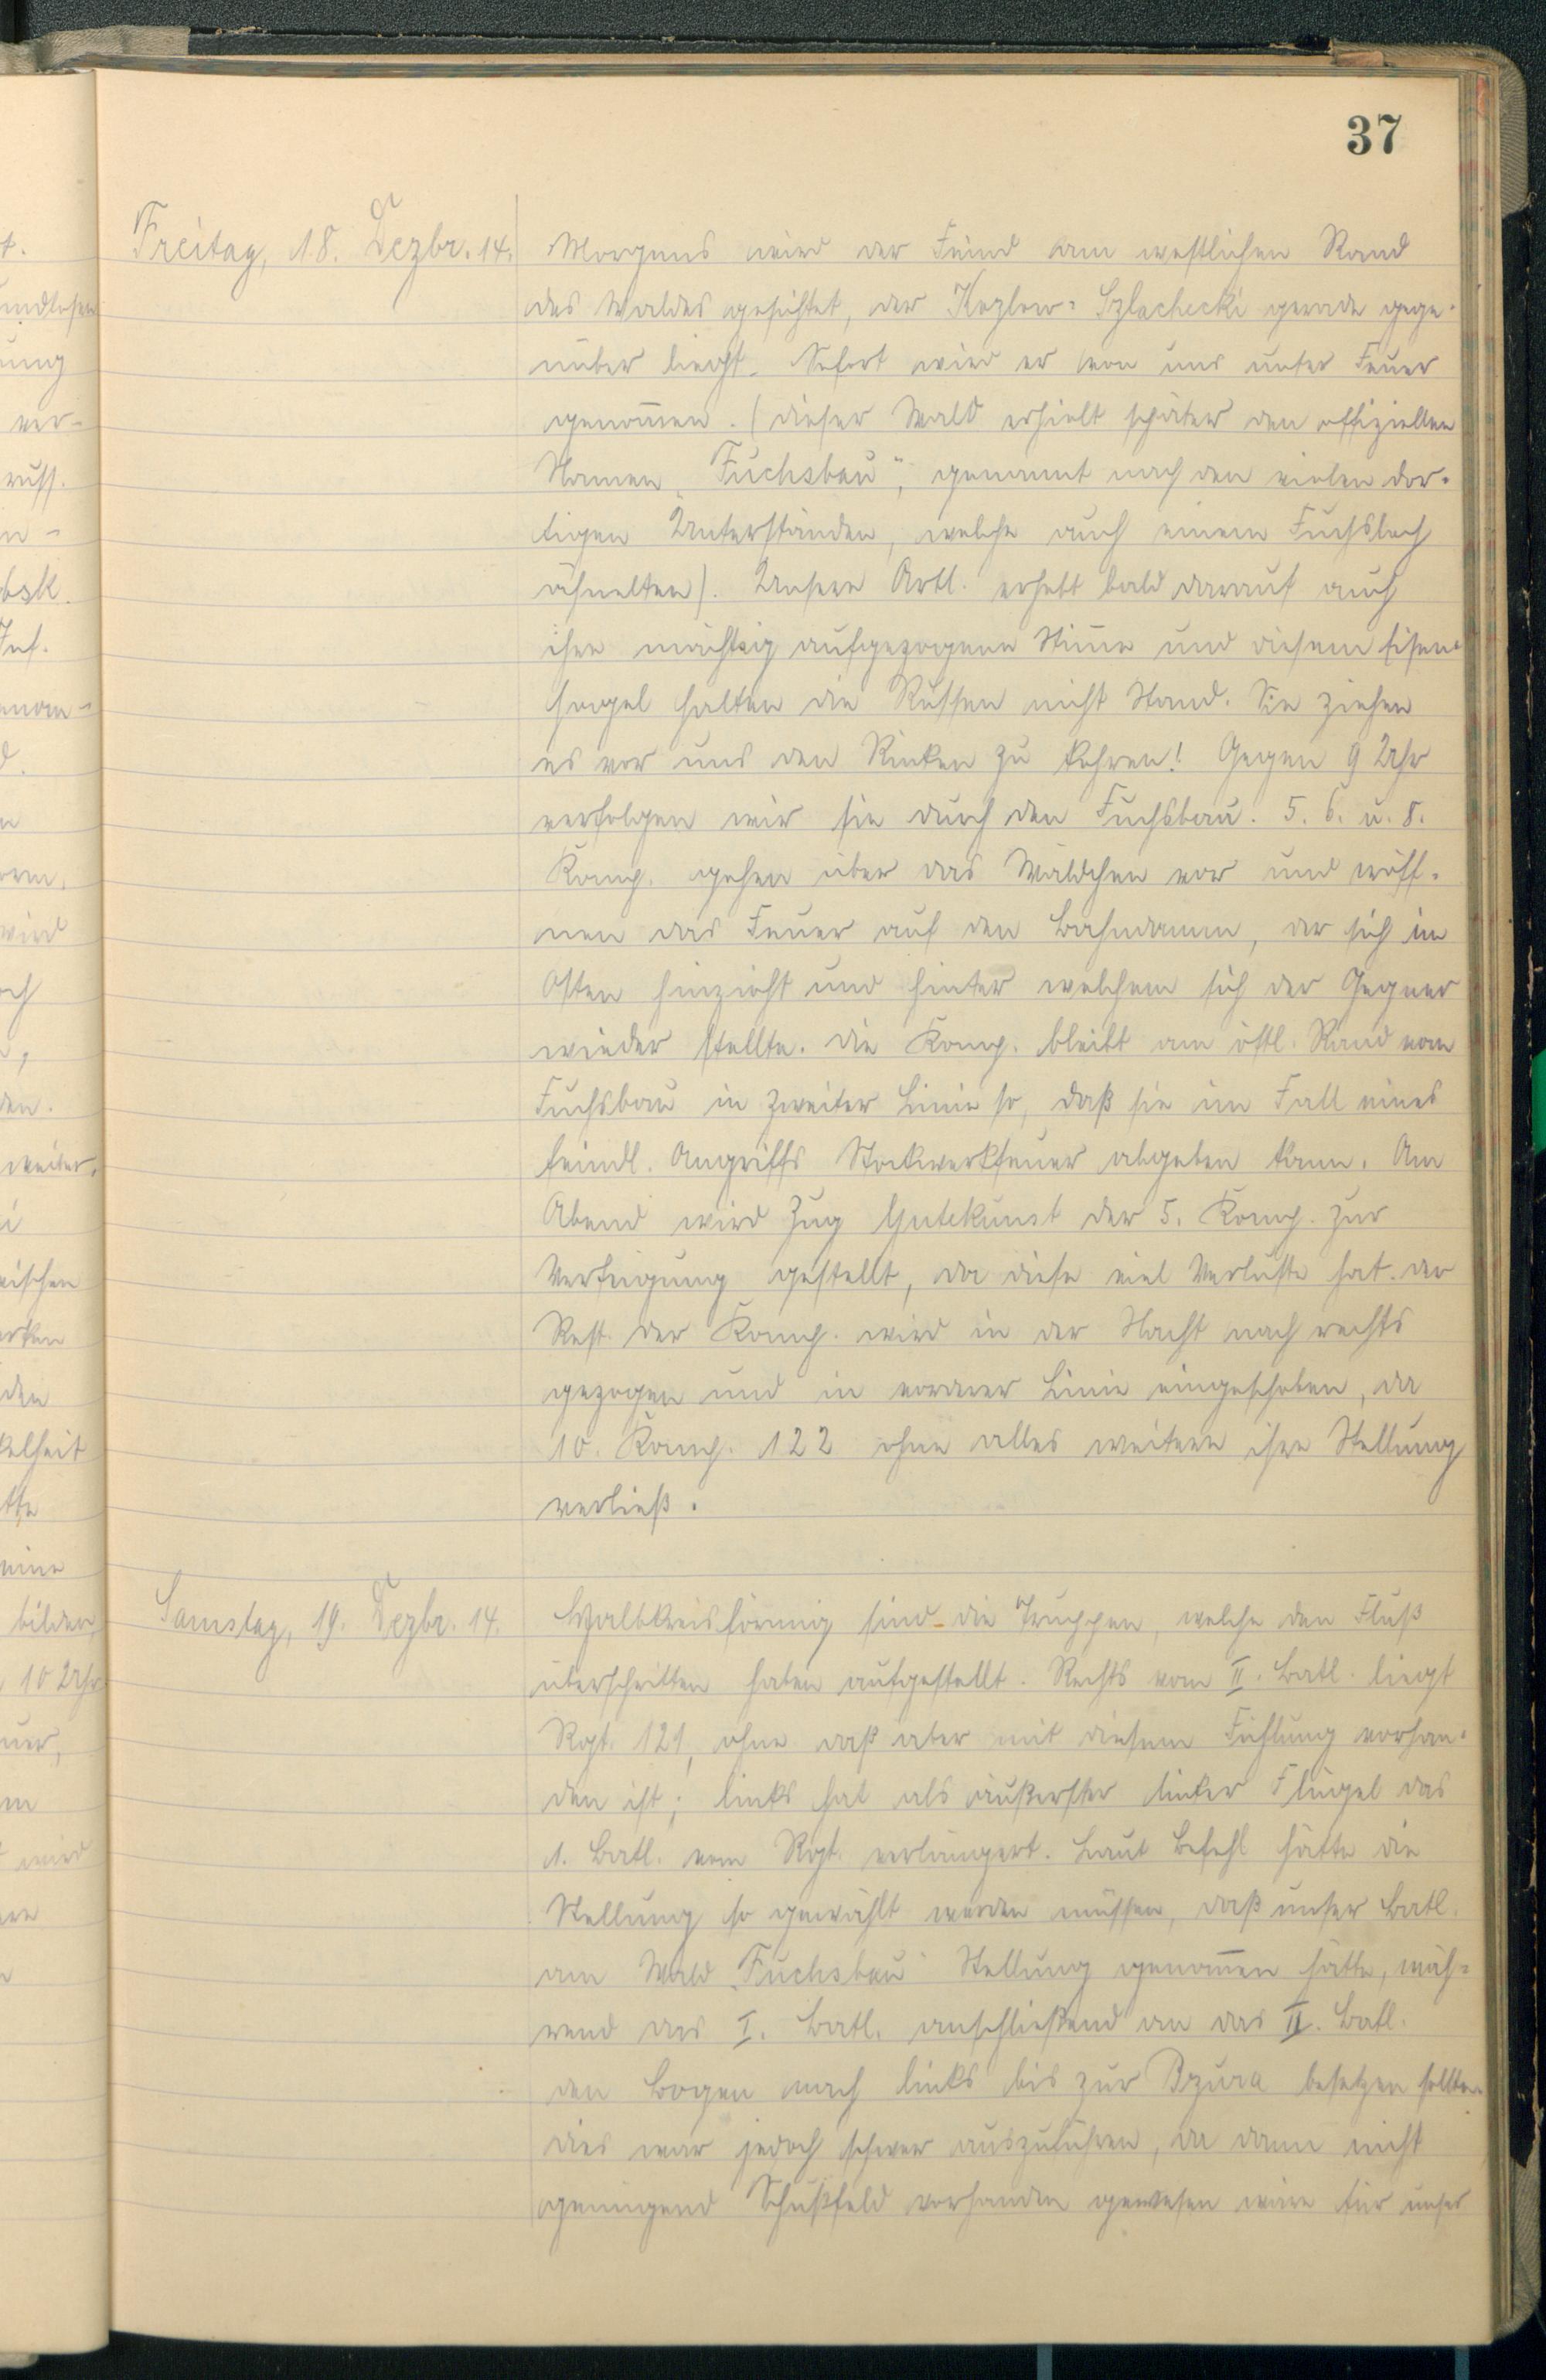 37
Freitag, 18. Dezbr. 14.
Morgens wird der Feind am westlichen Rand
des Waldes gesichtet, der Kozlow-Szlachecki gerade gege-
nüber liegt. Sofort wird er von uns unter Feuer
genom̄en. (Dieser Wald erhielt später den offiziellen
Namen „Fuchsbau", genannt nach den vielen dor-
tigen Unterständen, welche auch einem Fuchsloch
ähnelten). Unsere Artl. erhebt bald darauf auch
ihre mächtig aufgezogene Stim̄e und diesem Eisen-
hagel halten die Russen nicht Stand. Sie ziehen
es vor uns den Rücken zu kehren! Gegen 9 Uhr
verfolgen wir sie durch den Fuchsbau. 5. 6. u. 8.
Komp. gehen über das Wäldchen vor und eröff-
nen das Feuer auf den Bahndamm, der sich im
Osten hinzieht und hinter welchem sich der Gegner
wieder stellte. Die Komp. bleibt am östl. Rand vom
Fuchsbau in zweiter Linie so, daß sie im Fall eines
feindl. Angriffs Stockwerkfeuer abgeben kann. Am
Abend wird Zug Gutekunst der 5. Komp. zur
Verfügung gestellt, da diese viel Verluste hat. Der
Rest der Komp. wird in der Nacht nach rechts
gezogen und in vorderer Linie eingeschoben, da
10. Komp. 122 ohne alles weitere ihre Stellung
verließ.
Samstag, 19. Dezbr. 14.
Halbkreisförmig sind die Truppen, welche den Fluß
überschritten haben aufgestellt. Rechts vom II. Batl. liegt
Rgt. 121, ohne daß aber mit diesem Fühlung vorhan-
den ist; links hat als äußerster linker Flügel das
1. Batl. vom Rgt. verlängert. Laut Befehl hätte die
Stellung so gewählt werden müssen, daß unser Batl.
am Wald „Fuchsbau" Stellung genom̄en hätte, wäh-
rend das I. Batl. anschließend an das II. Batl.
den Bogen nach links bis zur Bzura besetzen sollte.
Dies war jedoch schwer auszuführen, da dann nicht
genügend Schußfeld vorhanden gewesen wäre für unser